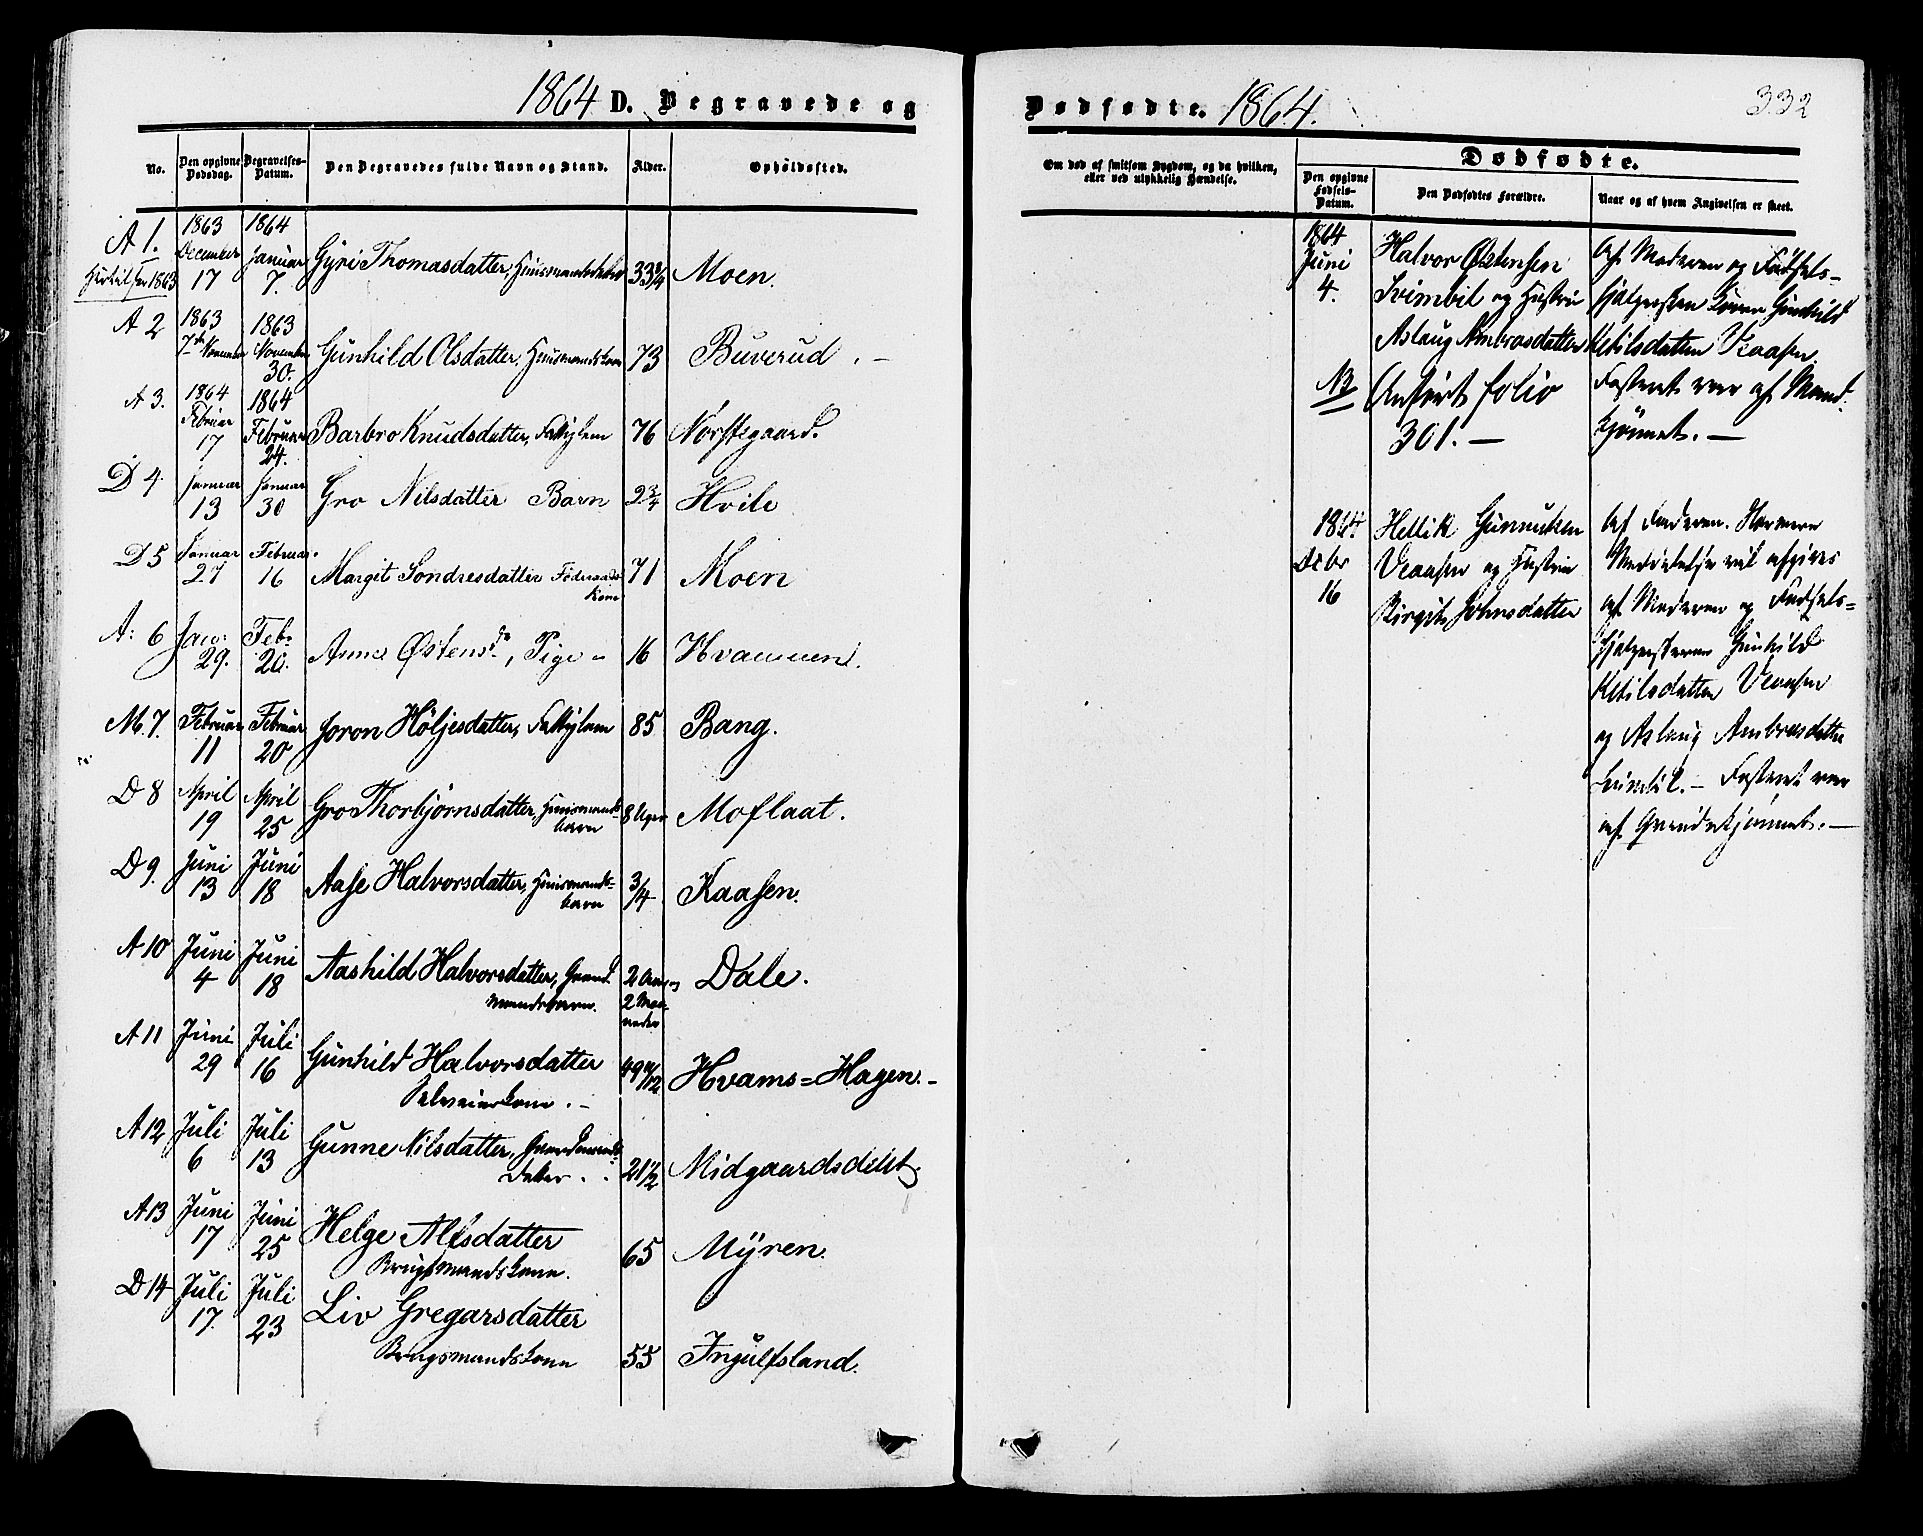 1864 D. Begravede og
No.
Den opgivne Dødsdag.
Begravelses-Datum.
Den Begravedes fulde Navn og Stand.
Alder.
Opholdssted.
A 1. 1863 December 17 1864 Januar 7. Gyri Thomasdatter, Huusmandsdatter 33 3/4 Moen.
A 2 1863 7de November 1863 November 30. Gunhild Olsdatter, Huusmandskone 73 Buverud. -
A 3. 1864 Februar 17 1864 Februar 24. Barbro Knudsdatter, Fattiglem 76 Norstegaard.
D 4. Januar 13 Januar 30 Gro Nilsdatter Barn 2 3/4 Hvile
D 5 Januar 27 Februar 16 Margit Sondresdatter Føderaads-
kone 71 Moen
A: 6 Jan: 29. Feb: 20. Anne Østensd., Pige - 16 Hvammen.
M. 7. Februar 11 Februar 20 Joron Høljesdatter, Fattiglem 85 Bang.
D 8 April 19 April 25 Gro Thorbjørnsdatter, Huusmands-
barn 8 Uger Moflaat.
D 9. Juni 13 Juni 18 Aase Halvorsdatter, Huusmands-
barn 3/4 Kaasen.
A 10 Juni 4 Juni 18 Aashild Halvorsdatter, Gaard-
mandsbarn. 2 Aar og 2 Maaneder Dale.
A 11 Juni 29 Juli 16 Gunhild Halvorsdatter
Selveierkone. - 49 Hvams=Hagen. -
A 12 Juli 6 Juli 13 Gunne Nilsdatter, Gaardmands-
datter. 21 1/2 Midgaardsdelet.
A 13 Juni 17 Juni 25 Helge Alfsdatter
Brugsmandskone. 65 Myren.
D 14 Juli 17. Juli 23 Liv Gregarsdatter
Brugsmandskone 55 Ingulfsland.
Dødfødte. 1864.
332
Om død af smitsom Sygdom, og da hvilken,
eller ved ulykkelig Hændelse.
Dødfødte.
Den opgivne Fødsels-Datum.
Den Dødfødtes Forældre.
Naar og af hvem Angivelsen er skeet.
1864
Juni
4.
Halvor Østensen
Svimbil og Hustru
Aslaug Ambrosdatter
Af Moderen og Fødsels-
hjælpersken Konen Gunhild
Ketilsdatter Vaasen.
NB
Anført folio
301. -
Fosteret var af Mand-
kjønnet. -
1864.
Dcbr
16
Hellik Gunnulsen
Vaasen og Hustru
Birgit Johnsdatter
Af Faderen. Nærmere
Meddelelse vil afgives
af Moderen og Fødsels=
hjælperskerne Gunhild
Ketilsdatter Vaasen
og Aslaug Ambrosdatter
Svimbil. - Fosteret var
af Qvindekjønnet. -